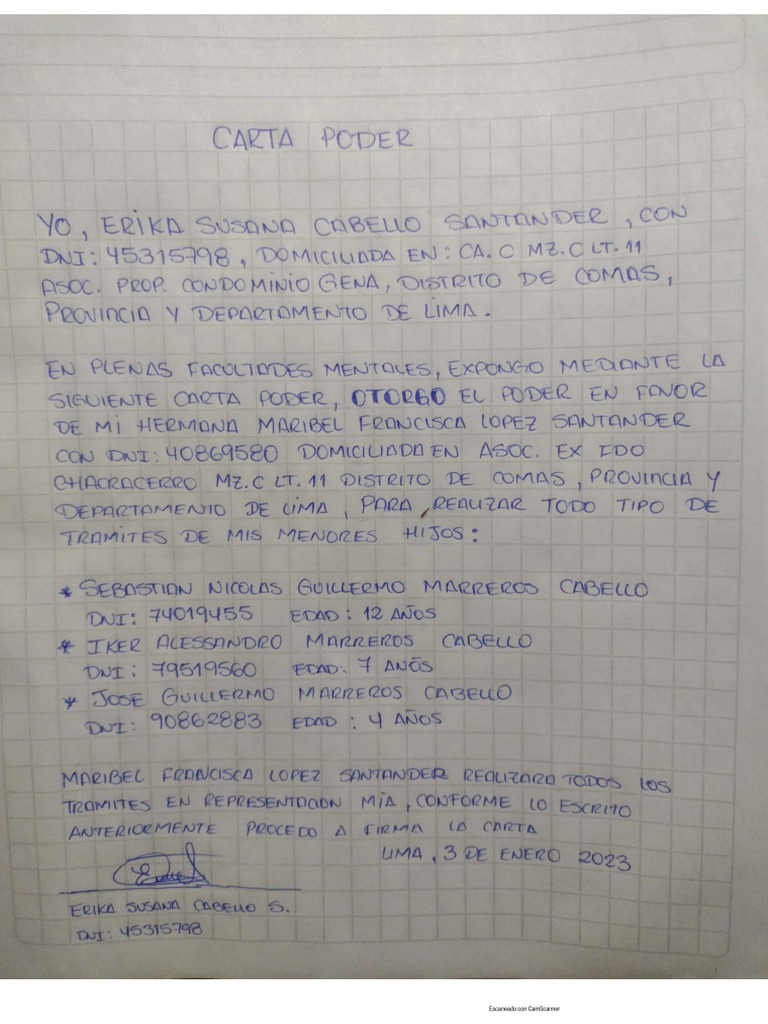 CARTA PODER
YO, ERIKA SUSANA CABELLO SANTANDER, CON
DNI: 45315798, DOMICILIADA EN: CA. C MZ. C LT. 11
ASOC. PROP. CONDOMINIO GENA, DISTRITO DE COMAS,
PROVINCIA Y DEPARTAMENTO DE LIMA.
EN PLENAS FACULTADES MENTALES, EXPONGO MEDIANTE LA
SIGUIENTE CARTA PODER, OTORGO EL PODER EN FAVOR
DE MI HERMANA MARIBEL FRANCISCA LOPEZ SANTANDER
CON DNI: 40869580 DOMICILIADA EN ASOC. EX FDO
CHACRACERRO MZ. C LT. 11 DISTRITO DE COMAS, PROVINCIA Y
DEPARTAMENTO DE LIMA, PARA REALIZAR TODO TIPO DE
TRAMITES DE MIS MENORES HIJOS:
* SEBASTIAN NICOLAS GUILLERMO MARREROS CABELLO
DNI: 74019455 EDAD: 12 AÑOS
* IKER ALESSANDRO MARREROS CABELLO
DNI: 79519560 EDAD: 7 AÑOS
* JOSE GUILLERMO MARREROS CABELLO
DNI: 90862883 EDAD: 4 AÑOS
MARIBEL FRANCISCA LOPEZ SANTANDER REALIZARA TODOS LOS
TRAMITES EN REPRESENTACION MÍA, CONFORME LO ESCRITO
ANTERIORMENTE PROCEDO A FIRMA LA CARTA
LIMA, 3 DE ENERO 2023
ERIKA SUSANA CABELLO S.
DNI: 45315798
Escaneado con CamScanner